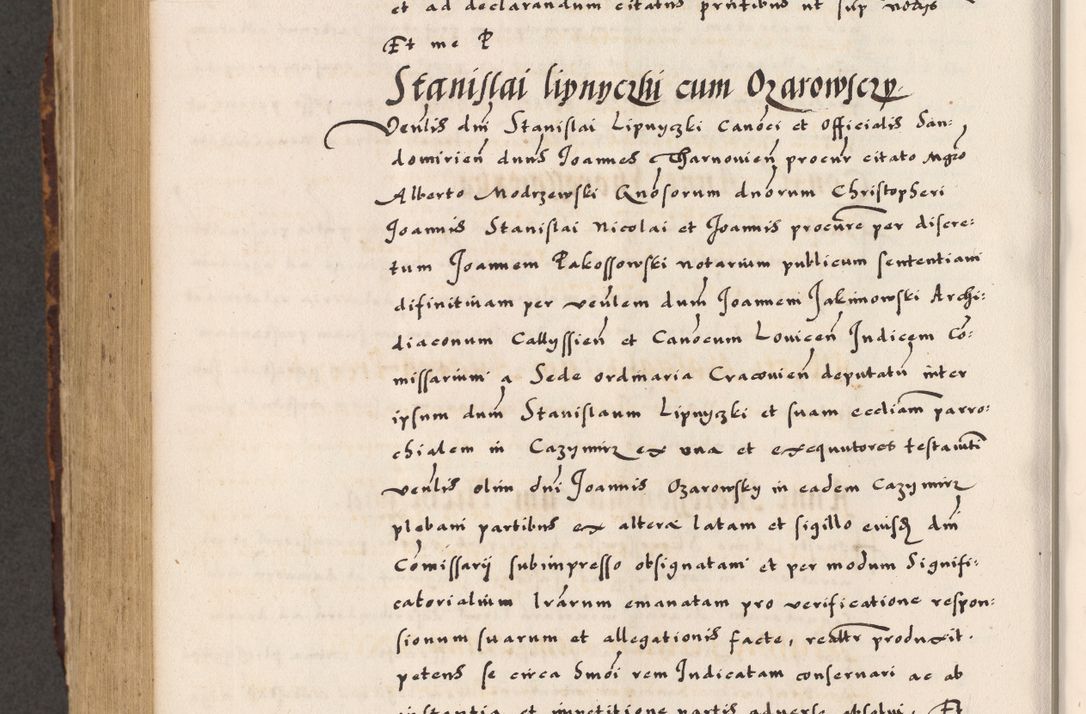 et ad declarandum citatus pntibus ut sup nobis
Et me P
Stanislai lipnyczki cum Ozarowsczy
Venlis dni Stanislai Lipnyczki Canoci et Officialis San-
domirien duns Joannes Tharnovien procur citato Mgro
Alberto Modrzewski Gnosorum dnorum Christopheri
Joannis Stanislai Nicolai et Joannis procure per discre-
tum Joannem Rakossowski notarium publicum sententiam
difinitivam per venlem dum Joannem Jakimowski Archi-
diaconum Callyssien et Canocum Lovicen Iudicem Co-
missarium a Sede ordinaria Cracovien deputatu inter
ipsum dum Stanislaum Lipnyczki et suam eccliam parro-
chialem in Cazymirz ex una et exequutores testamti
venlis olim dni Joannis Ozarowsky in eadem Cazymirz
plebani partibus ex altera latam et sigillo eiusdem dni
Comissarii subimpresso obsignatam et per modum Signifi-
catorialium lrarum emanatam pro verificatione respon-
sionum suarum et allegationis facte, realtr produxit.
petens se circa Smoi rem Iudicatam conservari ac ab
instantia et impetitione partis adverse absolvi. Et